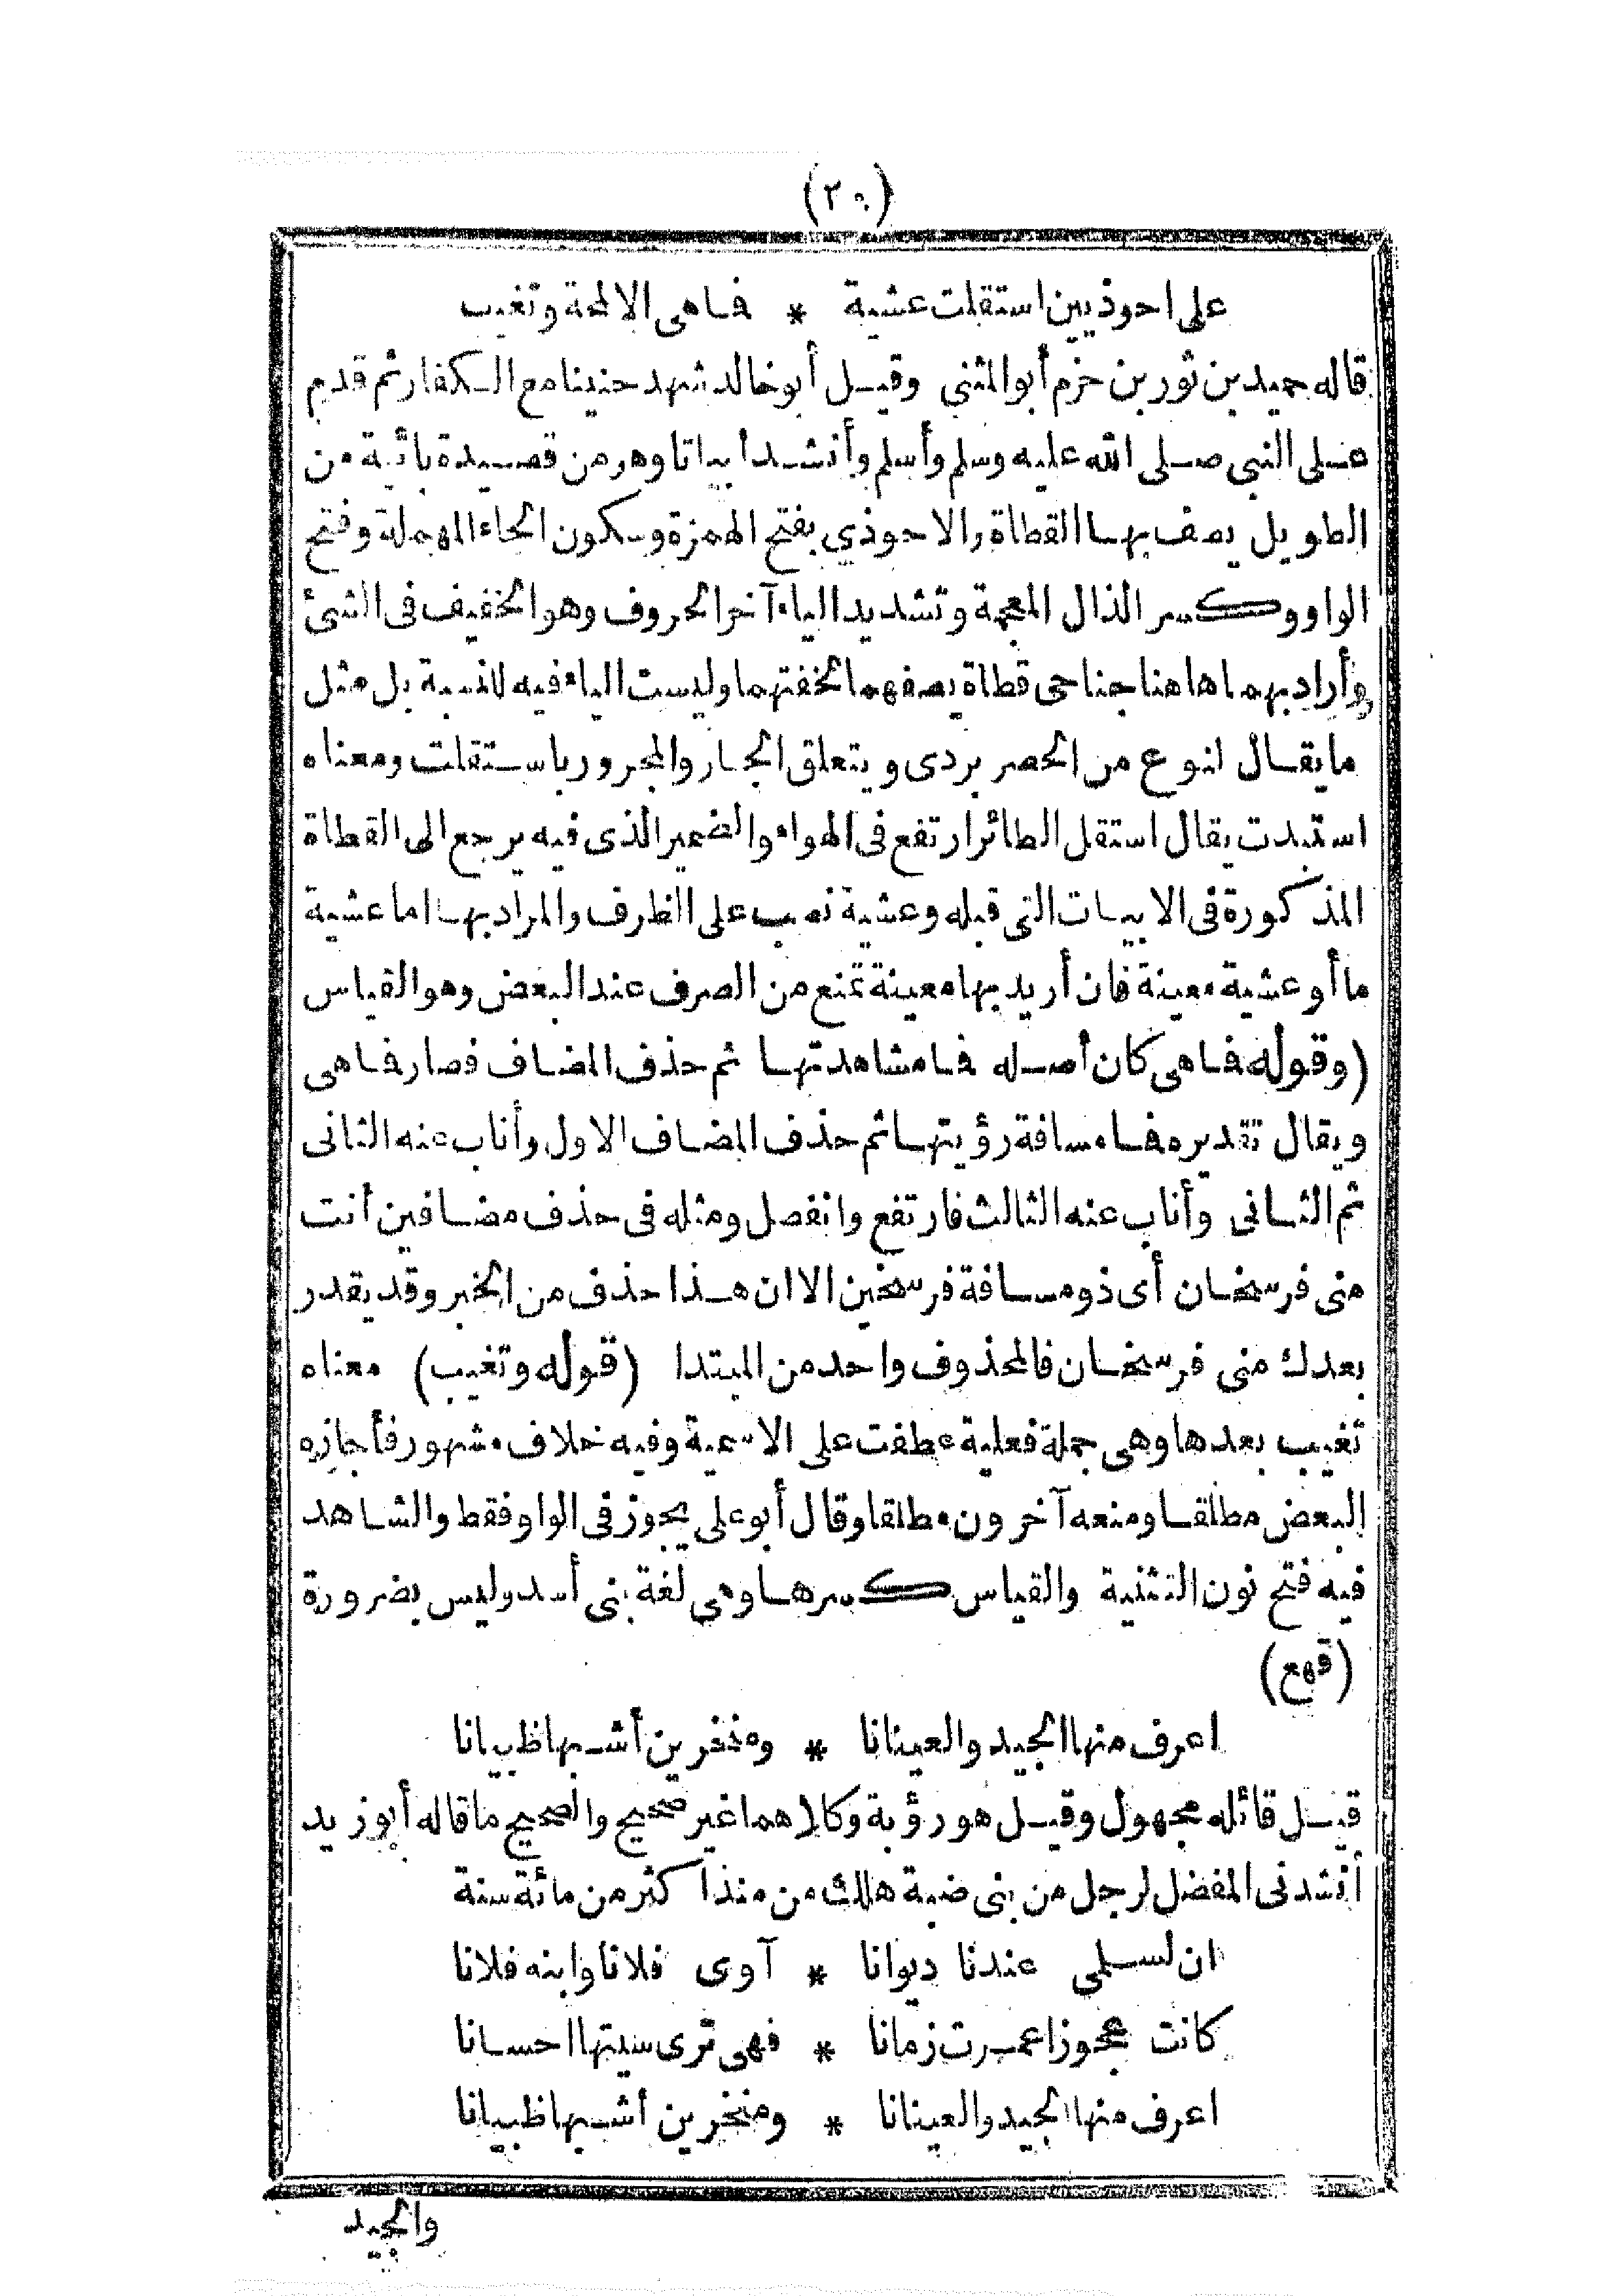 على احوذيين استقلت عشية * فما هى الالمحة وتغيب
قاله حميد بن ثور بن حزم أبو المثنى وقيل أبو خالد شهد حنينا مع الكفار ثم قدم
على النبى صلى الله عليه وسلم وأسلم وأنشد أبياتا وهو من قصيدة بائية من
الطويل يصف بها القطاة والاحوذي بفتح الهمزة وسكون الحاء المهملة وفتح
الواو وكسر الذال المعجمة وتشديد الياء آخر الحروف وهو الخفيف فى الشئ
وأراد بهما هاهنا جناحى قطاة يصفهما لخفتهما وليست الياء فيه للنسبة بل مثل
ما يقال لنوع من الحصر بردى ويتعلق الجار والمجرور باستقلت ومعناه
استبدت يقال استقل الطائر ارتفع فى الهواء والضمير الذى فيه يرجع الى القطاة
المذكورة فى الابيات التى قبله وعشية نصب على الظرف والمراد بها اما عشية
ما أو عشية معينة فان أريد بها معينة تمنع من الصرف عند البعض وهو القياس
(وقوله فما هى كان أصله فما مشاهدتها ثم حذف المضاف فصار فما هى
ويقال تقديره فما مسافة رؤيتها ثم حذف المضاف الاول وأناب عنه الثانى
ثم الثانى وأناب عنه الثالث فارتفع وانفصل ومثله فى حذف مضافين أنت
منى فرسخان أى ذو مسافة فرسخين الا ان هذا حذف من الخبر وقد يقدر
بعدك منى فرسخان فالمحذوف واحد من المبتدا (قوله وتغيب) معناه
تغيب بعدها وهى جملة فعلية عطفت على الاسمية وفيه خلاف مشهور فأجازه
البعض مطلقا ومنعه آخرون مطلقا وقال أبو على يجوز فى الواو فقط والشاهد
فيه فتح نون التثنية والقياس كسرها وهى لغة بنى أسد وليس بضرورة
(قهع)
اعرف منها الجيد والعينانا * ومنخرين أشبها ظبيانا
قيل قائله مجهول وقيل هو رؤبة وكلاهما غير صحيح والصحيح ما قاله أبو زيد
أنشدنى المفضل لرجل من بنى ضبة هلك من منذ اكثر من مائة سنة
ان لسلمى عندنا ديوانا * آوى فلانا وابنه فلانا
كانت عجوزا عمرت زمانا * فهى ترى سيتها احسانا
اعرف منها الجيد والعينانا * ومنخرين أشبها ظبيانا
والجيد